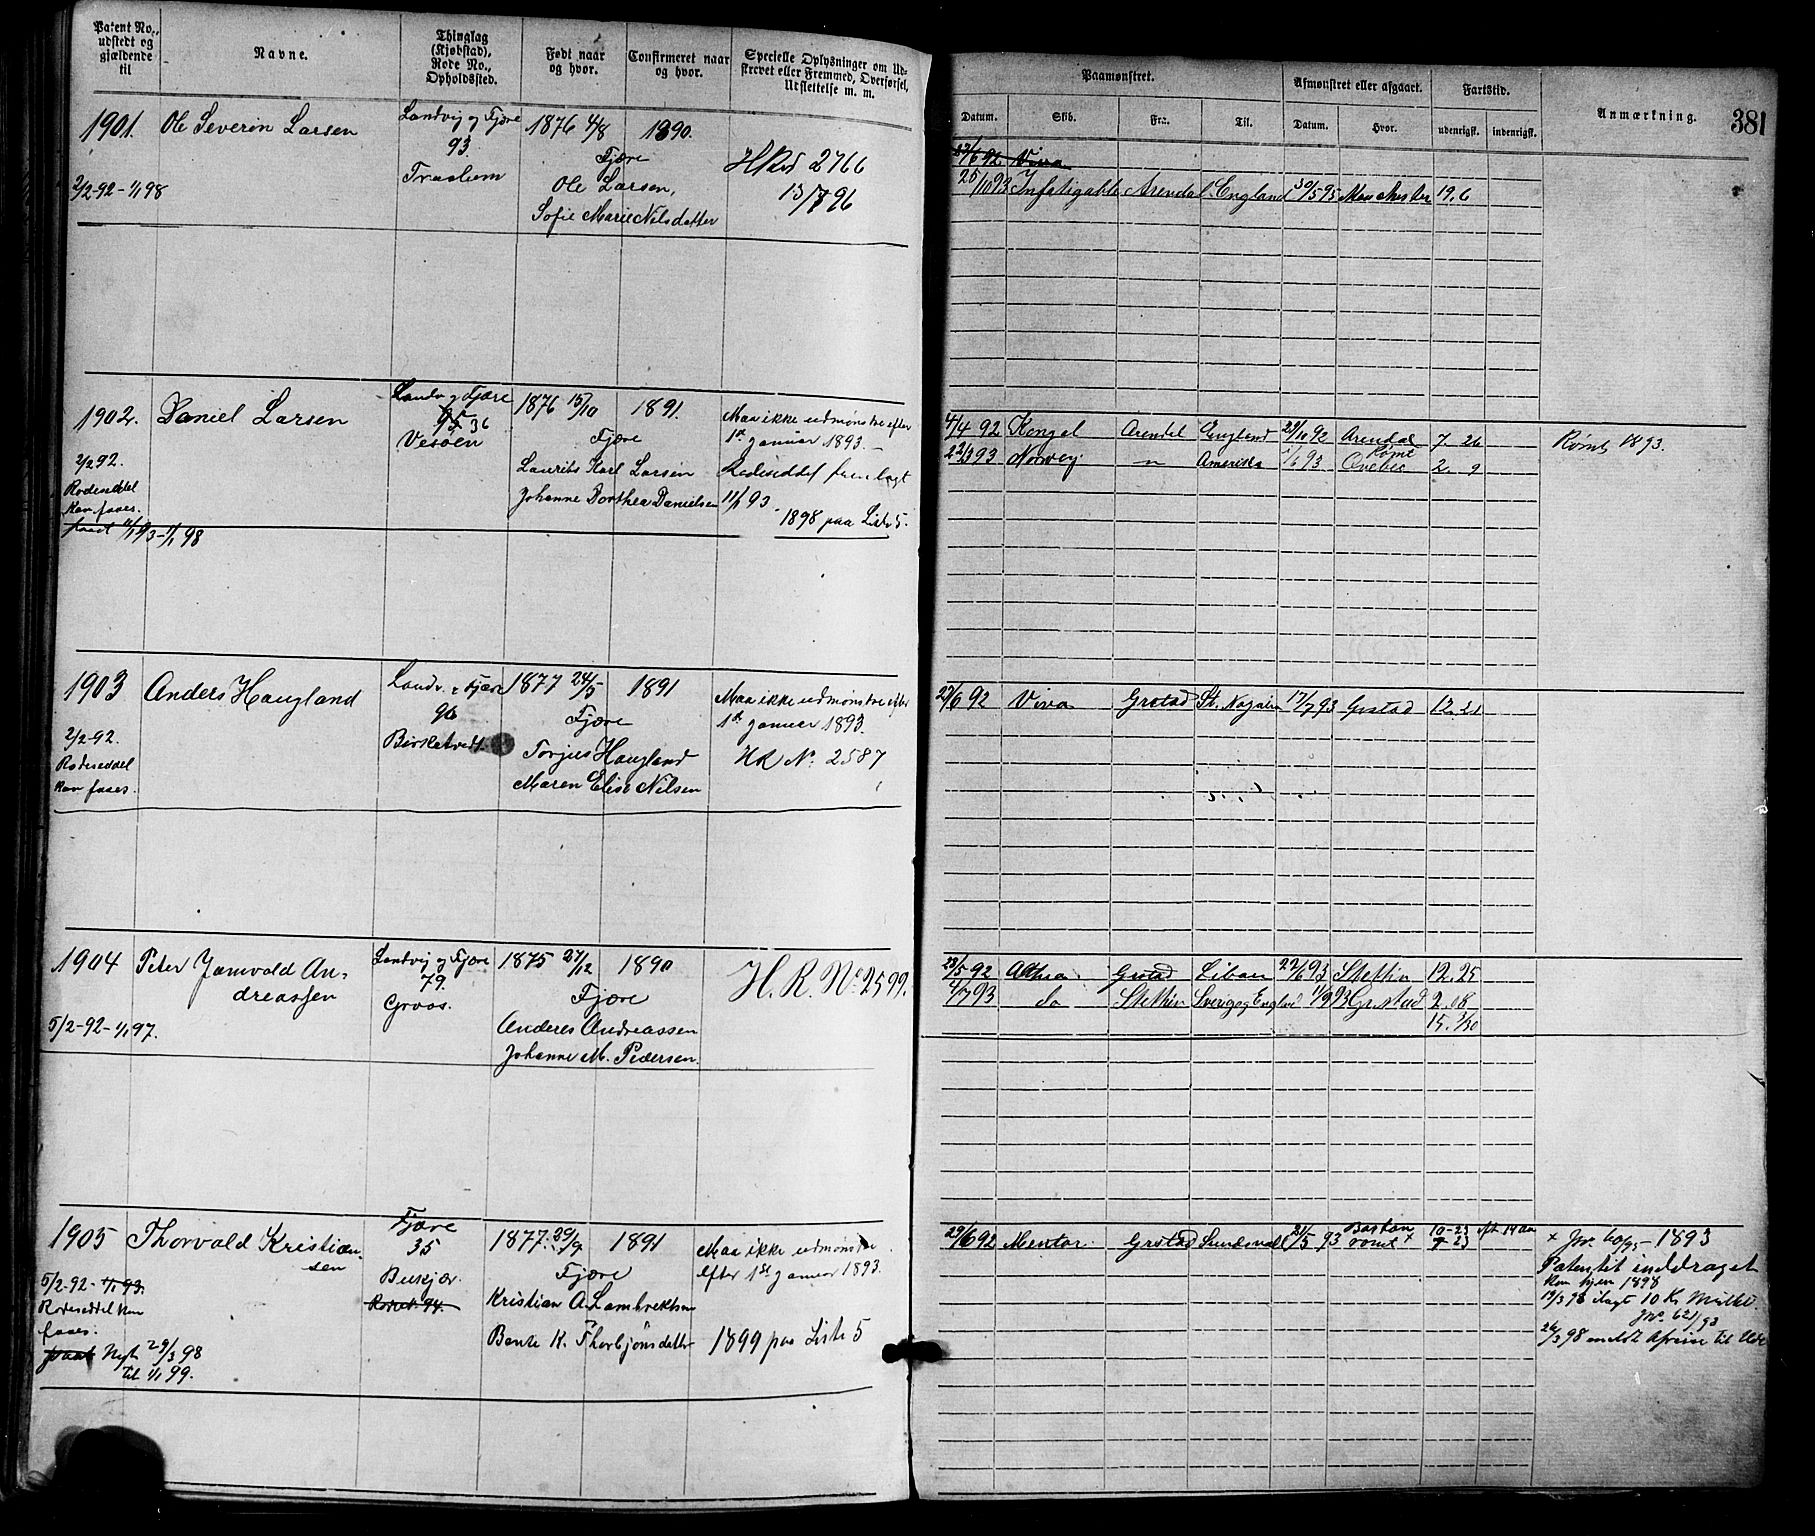 Patent No.,
udstedt og
gjældende
til
Navne.
Thinglag
(Kjøbstad),
Rode No.,
Opholdssted.
Født naar
og hvor.
Confirmeret naar
og hvor.
Specielle Oplysninger om Ud-
skrevet eller Fremmed, Overførsel,
Udslettelse m. m.
Paamønstret.
Datum. Skib. Fra. Til.
Afmønstret eller afgaaet.
Datum. Hvor.
Fartstid.
udenrigsk. indenrigsk.
Anmærkning.
381
1901. Ole Severin Larsen
2/2-92-1/1 98
Landvig og Fjære
93
1876 4/8 1890.
Fjære
Ole Larsen,
Sofie Marie Nilsdatter
2766
13/7 96
23/6 92 Viva
25/10 93 Infatigable Arendal England 30/5 95 Manchester 19.6
1902. Daniel Larsen
2/2 92.
Rodeseddel
kan faaes.
faaet 11/1 93-1/1 98
Landv og Fjære
95 36
Vesøen
1876 15/10 1891.
Fjære
Laurits Karl Larsen
Johanne Dorthea Danielsen
Maa ikke udmønstre efter
1st Januar 1893.
Rodeseddel fremlagt
11/1 93
1898 paa Liste 5.
4/4 92 Kongel Arendal England Arendal 7. 26
22/3 93 Norway " Amerika Rømt Quebec 2. 9
Rømt 1893.
1903 Anders Haugland
2/2-92.
Rodeseddel
kan faaes.
Landv. & Fjære
96
Birketvedt
1877 24/5 1891
Fjære
Torjus Haugland
Maren Elise Nilsen
Maa ikke udmønstre efter
1st Januar 1893.
HR No. 2587
23/6 92 Viva Grstad St. Nazaire 17/7 93 Grstad 12.21
1904 Peter Jamvold An-
dreassen
5/2-92-1/1 97.
Landvig og Fjære
79.
Groos.
1875 27/12 1890
Fjære
Anders Andreassen
Johanne M. Pedersen.
H. R. No 2599.
23/5 92 Althea Grstad Libau 22/6 93 Stettin 12.25
4/7 93 do Stettin Sverige og England 11/9 93 Grstad 2.08
15. 3/30
1905 Thorvald Kristian-
sen
5/2-92-1/1 93.
Rodeseddel kan
faaes.
faaet Nyt 29/3 98
til 1/1 99.
Fjære
35
Buskjær
1877. 29/9 1891
Fjære
Kristian A. Lambrektsen
Bente K. Thorbjønsdatter
Maa ikke udmønstre
efter 1st Januar 1893.
1899 paa Liste 5
29/6 92 Mentor Grstad Sundsvall 21/5 93 Boston rømt x 10-23
x Jnr. 60/95 - 1893
Patentet inddraget
kom hjem 1898
19/3 98 ilagt 10 Kr Mulkt.
Jnr. 62/98
26/3 98 meldt Afreise til Ude